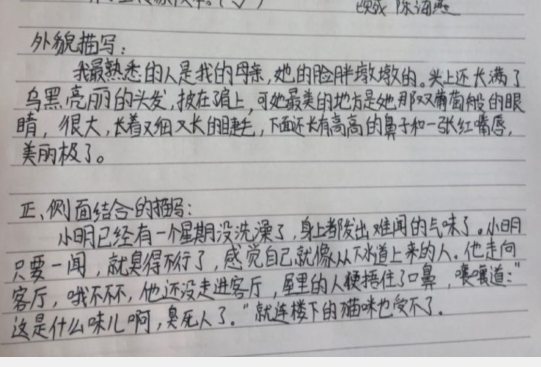 陈海燕
外貌描写：
我最熟悉的人是我的母亲，她的脸胖墩墩的。头上还长满了
乌黑亮丽的头发，披在肩上，可她最美的地方是她那双葡萄般的眼
睛，很大，长着又细又长的睫毛，下面还长有高高的鼻子和一张红嘴唇，
美丽极了。
正、侧面结合的描写：
小明已经有一个星期没洗澡了，身上都发出难闻的气味了。小明
只要一闻，就臭得不行了，感觉自己就像从下水道上来的人。他走向
客厅，哦不不，他还没走进客厅，屋里的人便捂住了口鼻，嚷嚷道："
这是什么味儿啊，臭死人了。"就连楼下的猫咪也受不了。